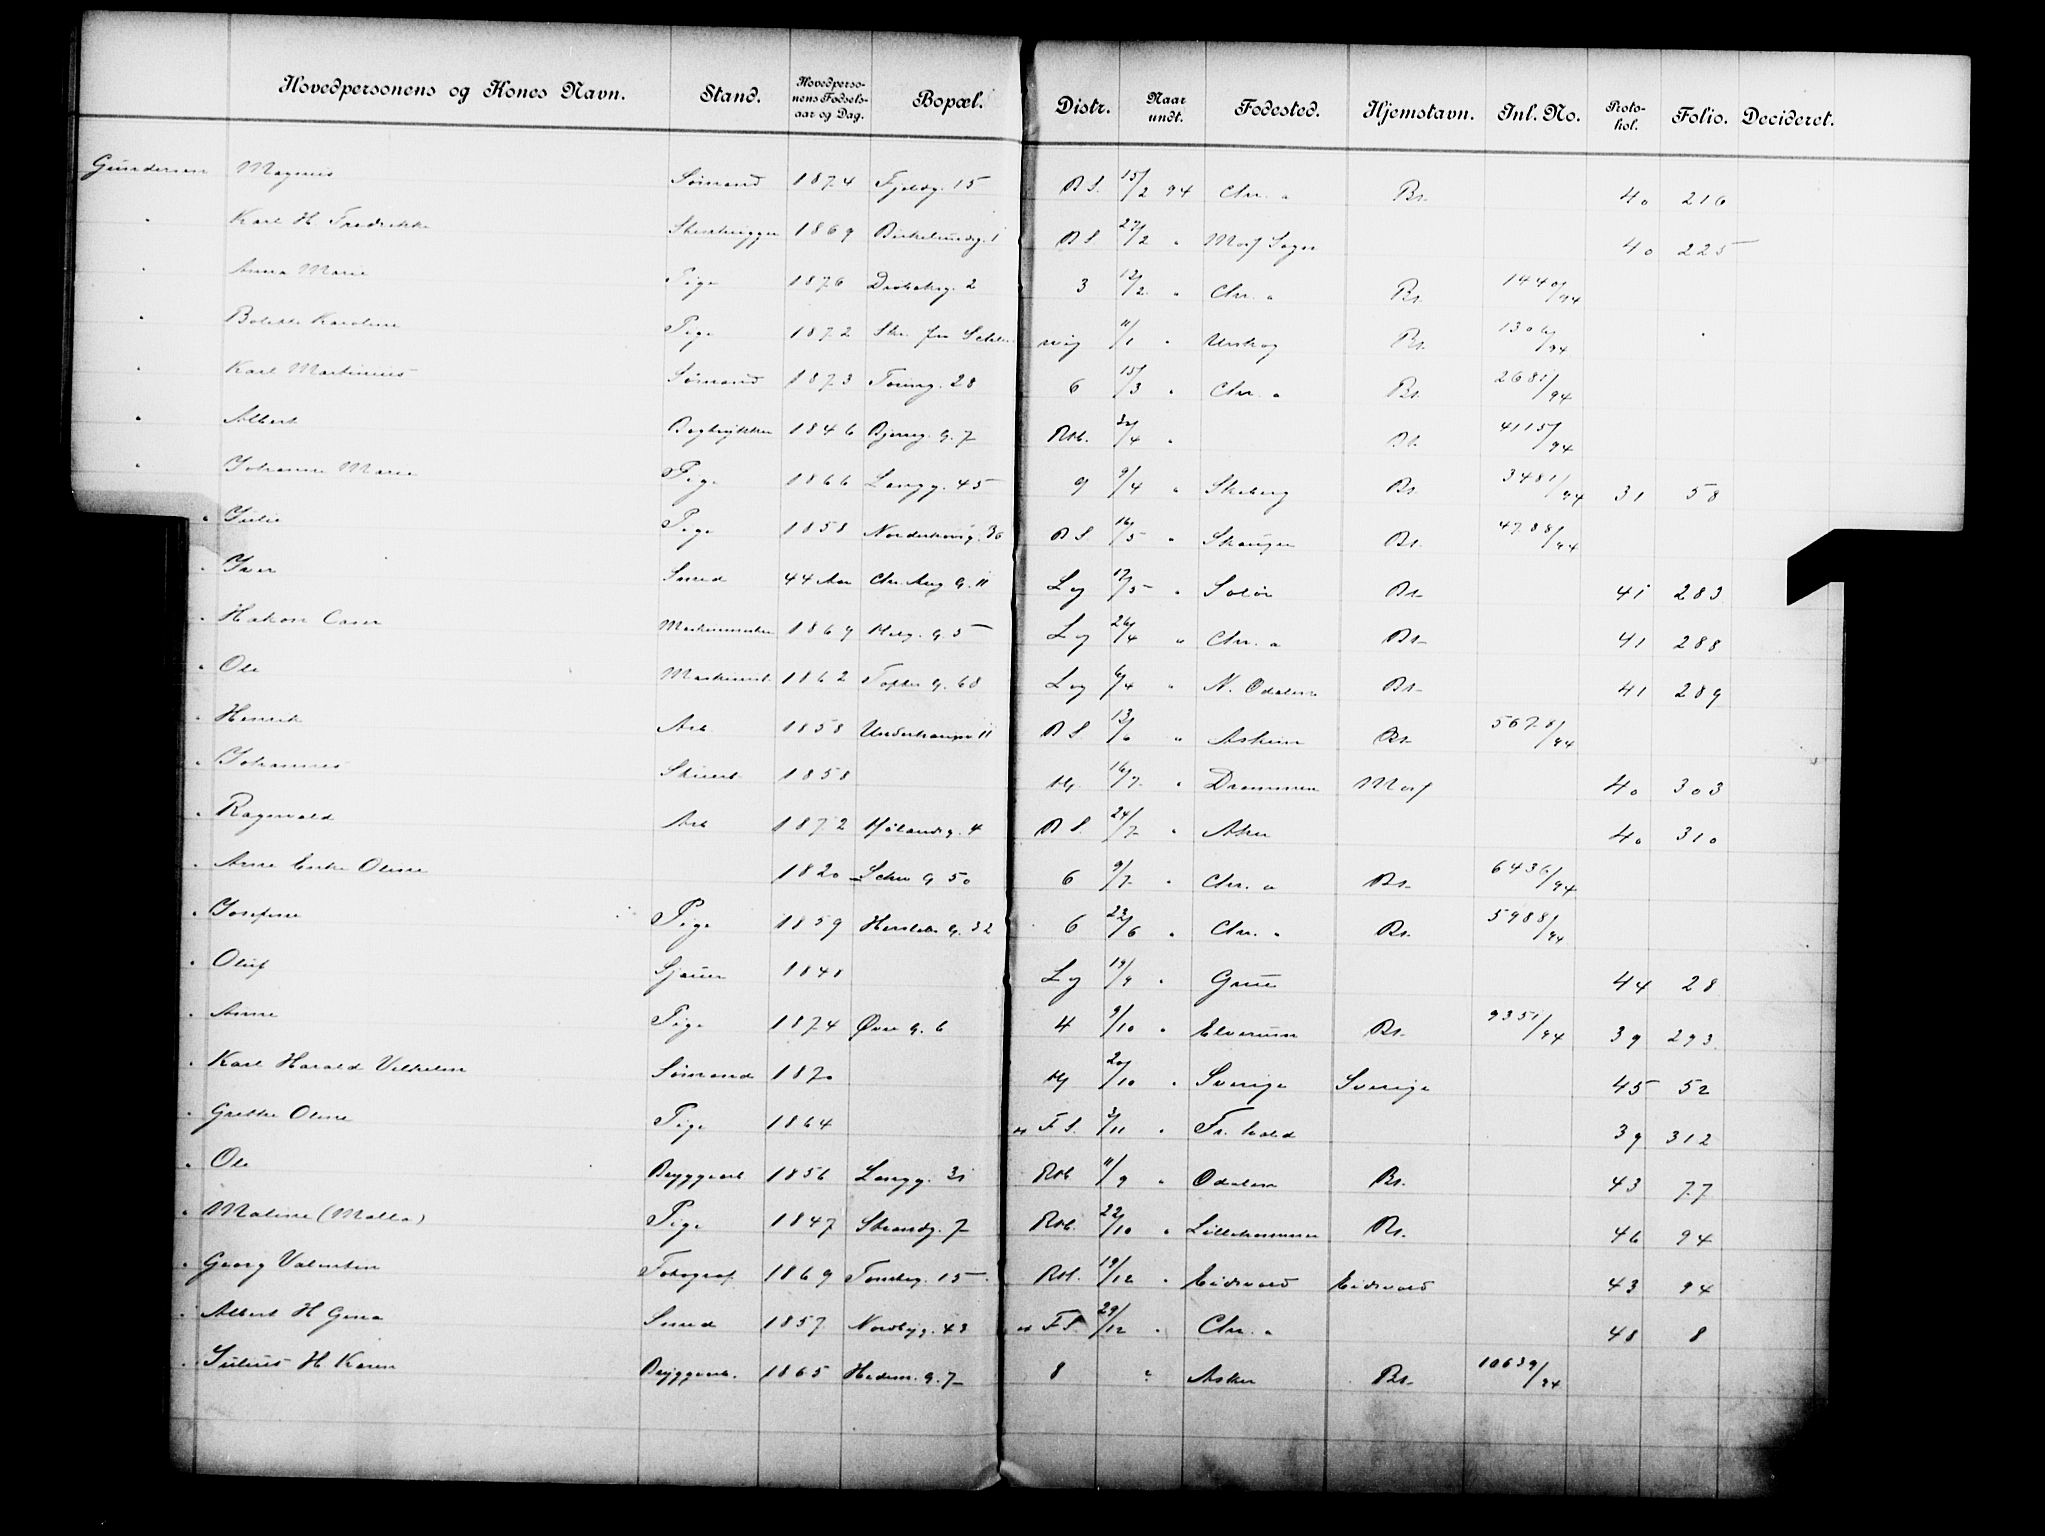 Hovedpersonens og Kones Navn. Stand. Hovedpersonens Fødselsaar og Dag. Bopæl. Distr. Naar undt. Fødested. Hjemstavn. Inl. No. Protokol. Folio. Decideret.
Gundersen Magnus Sømand 1874 Fjeldg. 15 B S. 15/2 94 Chr. a Bs. 40 216
" Karl H. Fredrikke 1869 Birkelundg. 1 B S. 27/2 " 40 225
" Anna Marie Pige 1876 Drøbaksg. 2 3 12/2 " Chr. a Bs. 1440/94
" Bolette Karoline Pige 1872 11/1 " Urskog Bs. 1306/94
" Karl Martinius Sømand 1873 28 6 15/3 " Chr. a Bs. 2681/94
" Albert Bogtrykker 1846 Bjerreg. G. 7 Rtb. /4 " Bs. 4115/94
" Johanne Marie Pige 1866 Langg. 45 9 9/4 " Skiberg Bs. 3481/94 31 58
" Julie Pige 1858 Norderhovg. 36 B S. 16/5 " Skauger Bs. 4788/94
" Iver Smed 44 Aar Chr. Aug. G. 11 Lg 17/5 " Solør Bs. 41 283
" Hakon Casper 1869 Helg. G. 5 Lg 26/4 " Chr. a Bs. 41 288
" Ole Maskinist 1862 Tofte G. 68 Lg 6/4 " N. Odalen Bs. 41 289
" Henrik Arb 1858 11 B S. 13/6 " Askim Bs. 5678/94
" Johannes 1858 16/7 " Drammen 40 303
" Ragnvald Arb 1872 Hølandsg. 4 B S. 24/7 " Aker 40 310
" Anne Oline 1820 Schw G 50 6 9/7 " Chr. a Bs. 6436/94
" Josefine Pige 1859 Herslebs G. 32 6 22/6 " Chr. " Bs. 5988/94
" Oluf Sjauer 1848 Lg 19/9 " Grue 44 28
" Anne Pige 1874 Øvre G. 6 4 9/10 " Elverum Bs. 9351/94 39 293
" Karl Harald Vilhelm Sømand 1870 20/10 " Sverige Sverige 45 52
" Grethe Oline Pige 1864 F S. 3/11 " Fr. hald 39 312
" Ole Bryggearb 1856 Langg. 31 Rtb 11/9 " Odalen Bs. 43 77
" Maline (Malla) Pige 1847 Strandg. 7 Rtb. 22/10 " Lillehammer Bs. 46 94
" Georg Valentin Fotograf 1869 Tønsbg. 15 Rtb. 19/12 " Eidsvold Eidsvold 43 94
" Albert H Gina Smed 1857 Nordbyg. 43 F S. 29/12 " Chr. a 48 8
" Julius H Karen Bryggearb. 1865 Hedem. G. 7 8 " Asker Bs. 10639/94